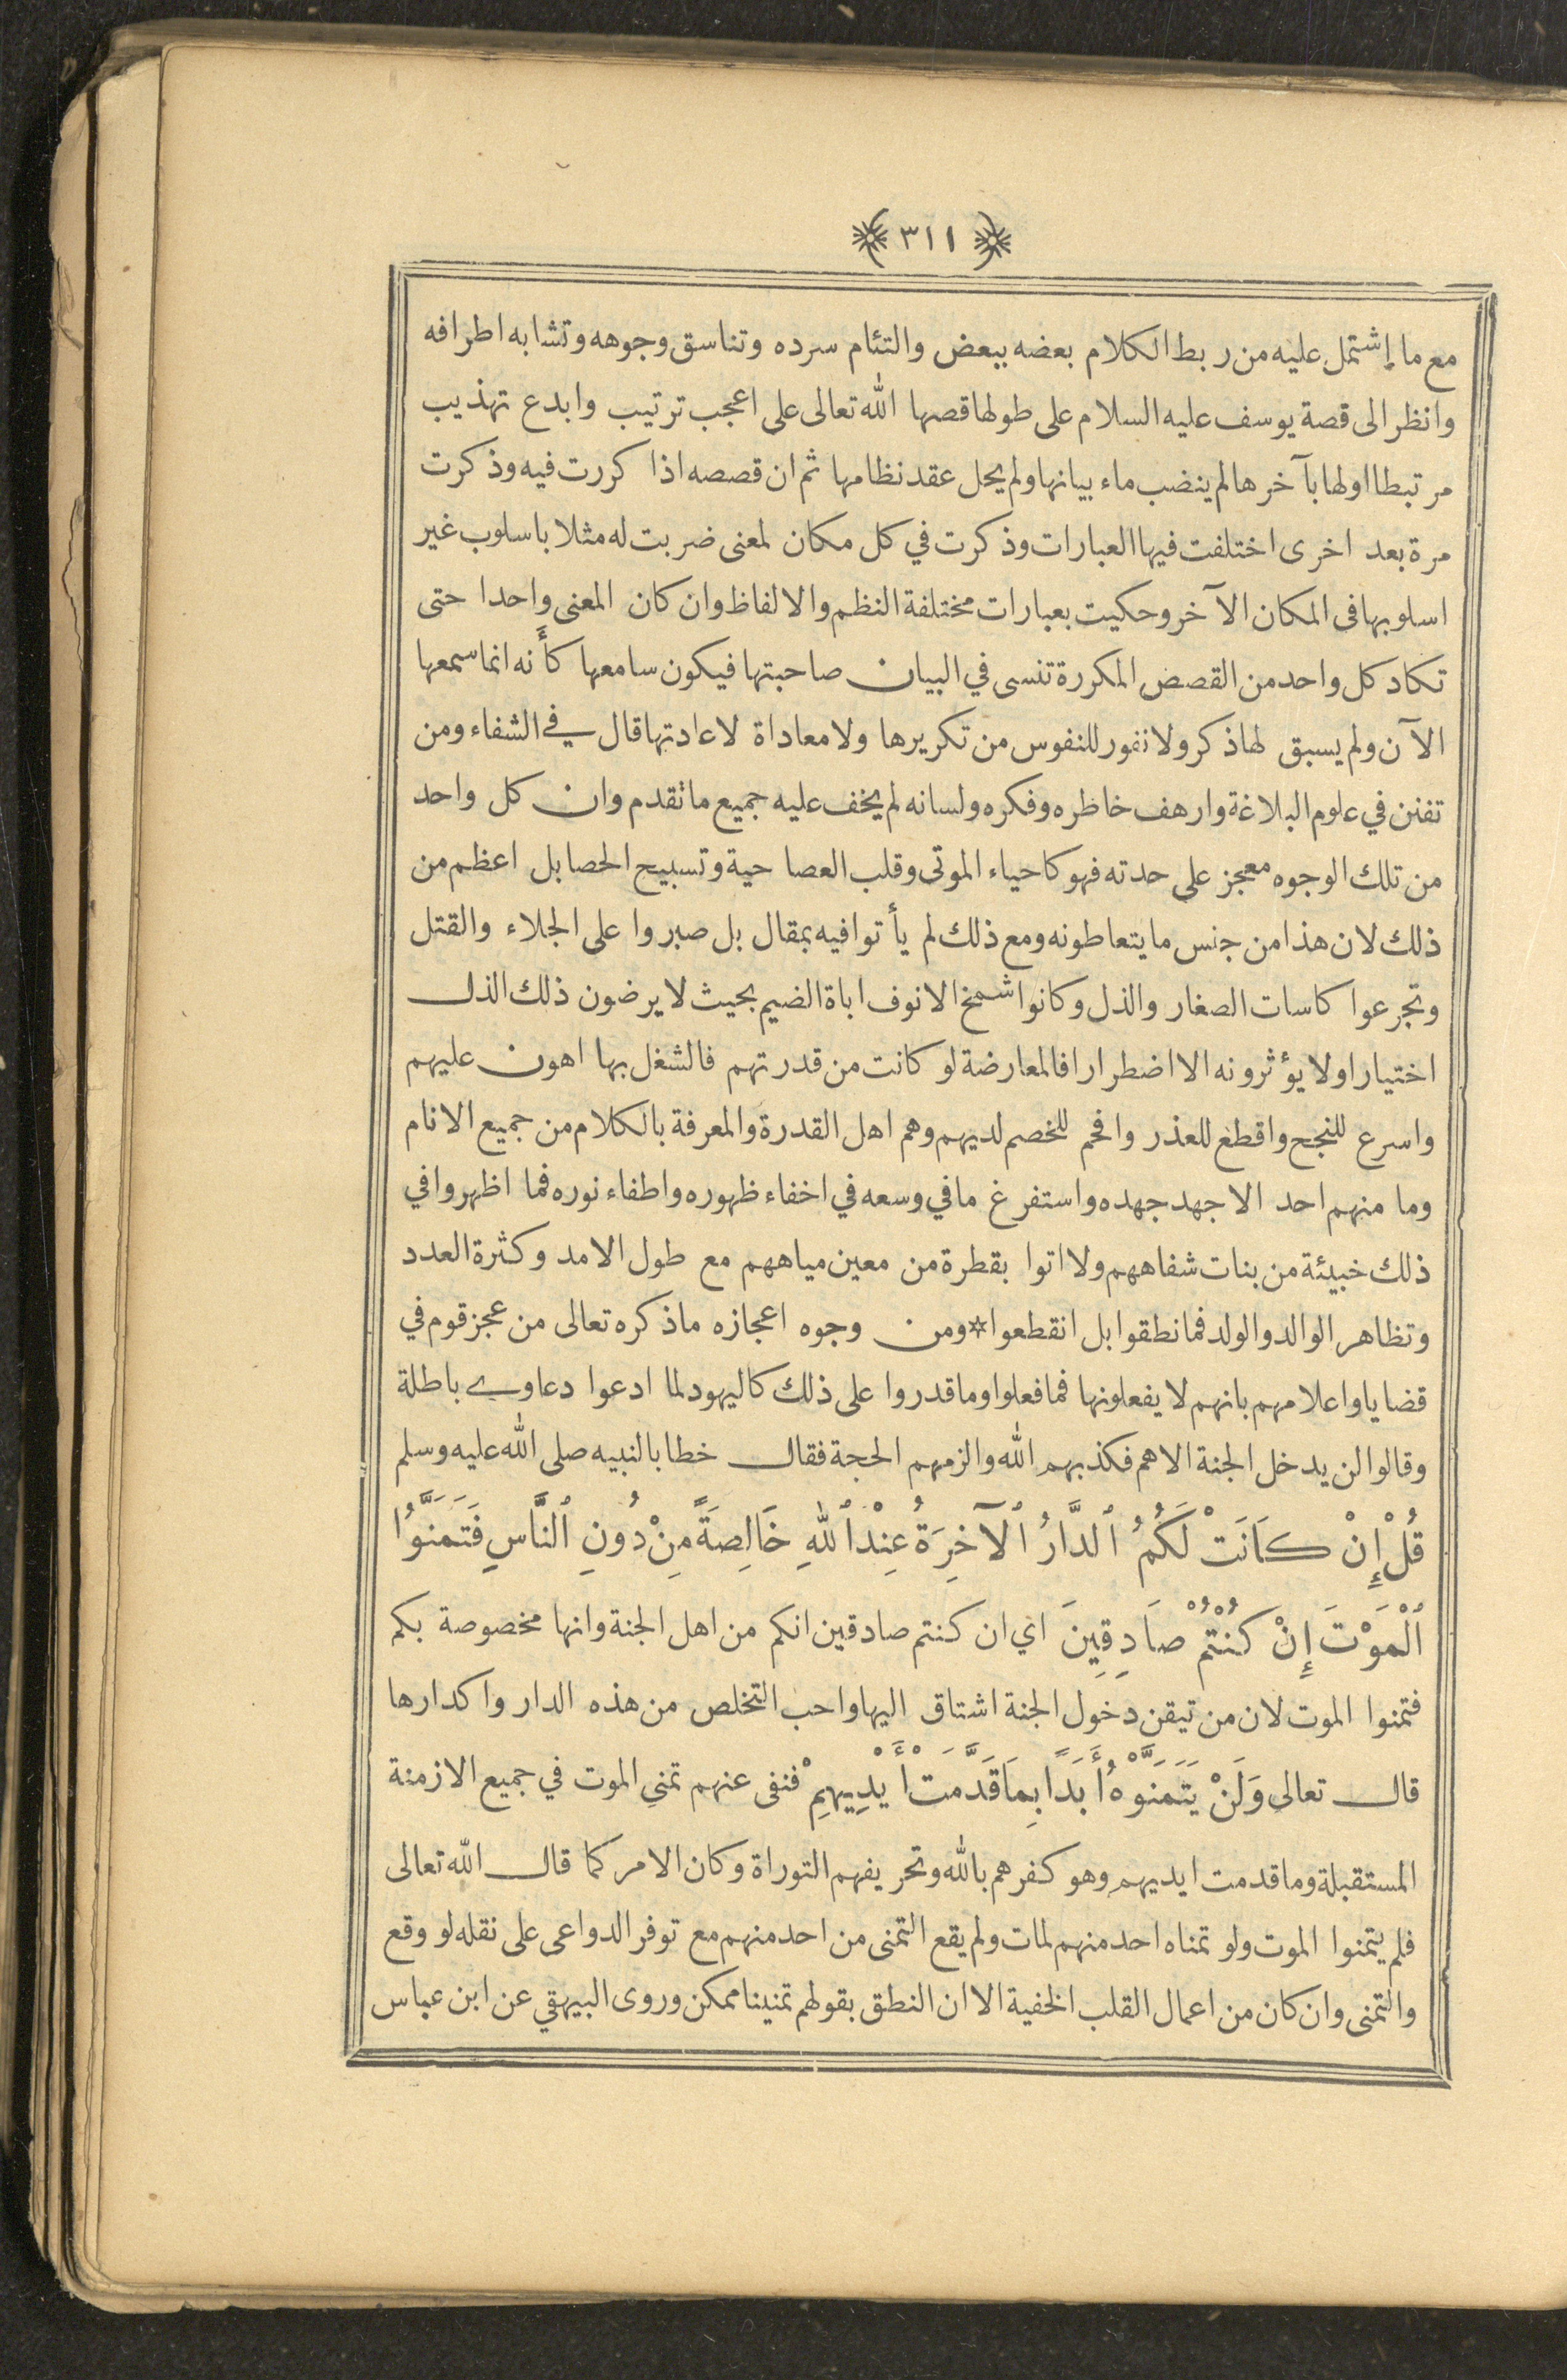 ٣١١
مع ما إشتمل عليه من ربط الكلام بعضه ببعض والتئام سرده وتناسق وجوهه وتشابه اطرافه
وانظر الى قصة يوسف عليه السلام على طولها قصها الله تعالى على اعجب ترتيب وابدع تهذيب
مرتبطا اولها بآخرها لم ينضب ماء بيانها ولم يحل عقد نظامها ثم ان قصصه اذا كررت فيه وذكرت
مرة بعد اخرى اختلفت فيها العبارات وذكرت في كل مكان لمعنى ضربت له مثلا باسلوب غير
اسلوبها فى المكان الآخر وحكيت بعبارات مختلفة النظم والالفاظ وان كان المعنى واحدا حتى
تكاد كل واحد من القصص المكررة تنسى في البيان صاحبتها فيكون سامعها كأنه انما سمعها
الآن ولم يسبق لها ذكر ولا نفور للنفوس من تكريرها ولا معاداة لاعادتها قال في الشفاء ومن
تفنن في علوم البلاغة وارهف خاطره وفكره ولسانه لم يخف عليه جميع ما تقدم وان كل واحد
من تلك الوجوه معجز على حدته فهو كاحياء الموتى وقلب العصا حية وتسبيح الحصا بل اعظم من
ذلك لان هذا من جنس ما يتعاطونه ومع ذلك لم يأتوا فيه بمقال بل صبروا على الجلاء والقتل
وتجرعوا كاسات الصغار والذل وكانوا شمخ الانوف اباة الضيم بحيث لا يرضون ذلك الذل
اختيارا ولا يؤثرونه الا اضطرارا فالمعارضة لو كانت من قدرتهم فالشغل بها اهون عليهم
واسرع للنجح واقطع للعذر وافحم للخصم لديهم وهم اهل القدرة والمعرفة بالكلام من جميع الانام
وما منهم احد الا جهد جهده واستفرغ ما في وسعه في اخفاء ظهوره واطفاء نوره فما اظهروا في
ذلك خبيئة من بنات شفاههم ولا اتوا بقطرة من معين مياههم مع طول الامد وكثرة العدد
وتظاهر الوالد والولد فما نطقوا بل انقطعوا * ومن وجوه اعجازه ما ذكره تعالى من عجز قوم في
قضايا واعلامهم بانهم لا يفعلونها فما فعلوا وما قدروا على ذلك كاليهود لما ادعوا دعاوي باطلة
وقالوا لن يدخل الجنة الا هم فكذبهم الله والزمهم الحجة فقال خطابا لنبيه صلى الله عليه وسلم
قُلْ إِنْ كَانَتْ لَكُمُ ٱلدَّارُ ٱلْآخِرَةُ عِنْدَ ٱللهِ خَالِصَةً مِنْ دُونِ ٱلنَّاسِ فَتَمَنَّوُا
ٱلْمَوْتَ إِنْ كُنْتُمْ صَادِقِينَ اي ان كنتم صادقين انكم من اهل الجنة وانها مخصوصة بكم
فتمنوا الموت لان من تيقن دخول الجنة اشتاق اليها واحب التخلص من هذه الدار واكدارها
قال تعالى وَلَنْ يَتَمَنَّوْهُ أَبَدًا بِمَا قَدَّمَتْ أَيْدِيهِمْ فنفى عنهم تمني الموت في جميع الازمنة
المستقبلة وما قدمت ايديهم وهو كفرهم بالله وتحريفهم التوراة وكان الامر كما قال الله تعالى
فلم يتمنوا الموت ولو تمناه احد منهم لمات ولم يقع التمنى من احد منهم مع توفر الدواعى على نقله لو وقع
والتمنى وان كان من اعمال القلب الخفية الا ان النطق بقولهم تمنينا ممكن وروى البيهقي عن ابن عباس